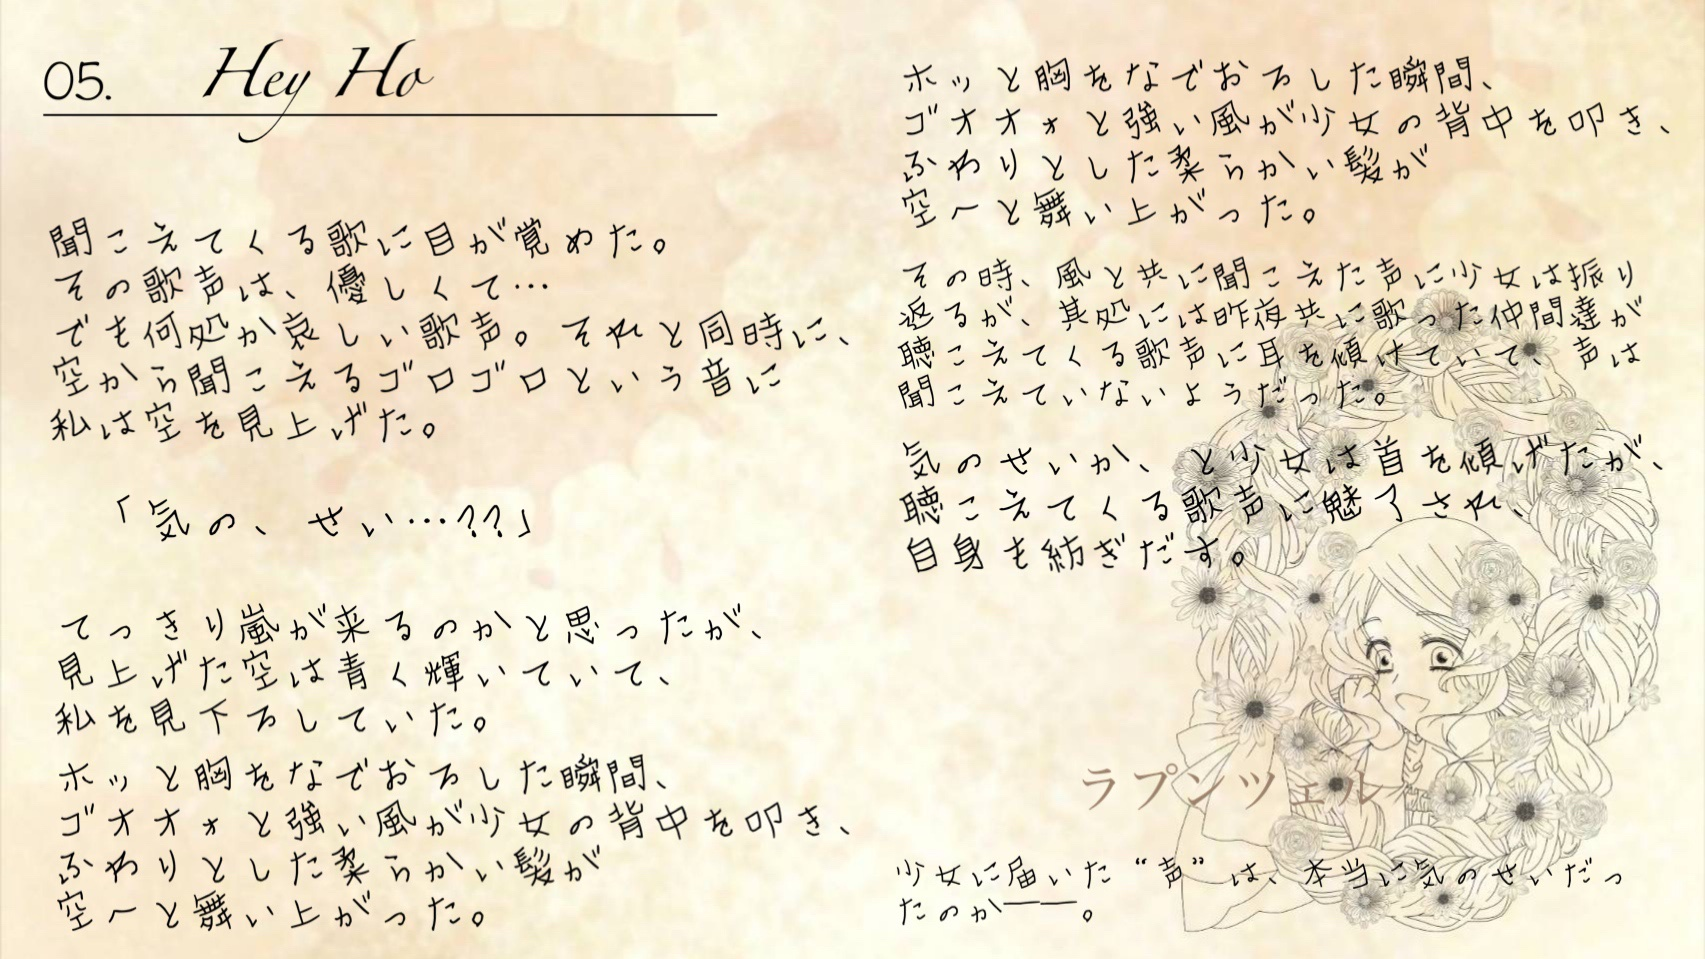 05. Hey Ho
聞こえてくる歌に目が覚めた。
その歌声は、優しくて…
でも何処か哀しい歌声。それと同時に、
空から聞こえるゴロゴロという音に
私は空を見上げた。
「気の、せい…??」
てっきり嵐が来るのかと思ったが、
見上げた空は青く輝いていて、
私を見下ろしていた。
ホッと胸をなでおろした瞬間、
ゴオオォと強い風が少女の背中を叩き、
ふわりとした柔らかい髪が
空へと舞い上がった。
ホッと胸をなでおろした瞬間、
ゴオオォと強い風が少女の背中を叩き、
ふわりとした柔らかい髪が
空へと舞い上がった。
その時、風と共に聞こえた声に少女は振り
返るが、其処には昨夜共に歌った仲間達が
聴こえてくる歌声に耳を傾けていて、声は
聞こえていないようだった。
気のせいか、と少女は首を傾げたが、
聴こえてくる歌声に魅了され、
自身も紡ぎだす。
ラプンツェル
少女に届いた“声”は、本当に気のせいだっ
たのか――。